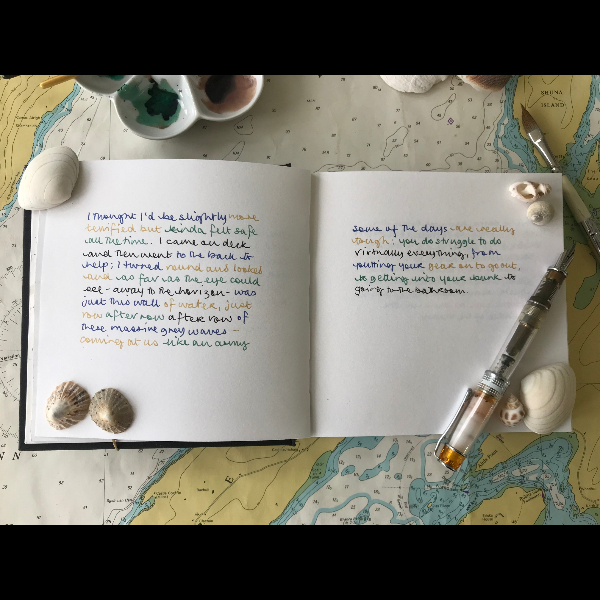 SHUNA
ISLAND
I thought I'd be slightly more
terrified but kinda felt safe
all the time. I came on deck
and then went to the back to
help; I turned round and looked
and as far as the eye could
see - away to the horizon - was
just this wall of water, just
row after row after row of
these massive grey waves -
coming at us like an army
some of the days are really
tough; you do struggle to do
virtually everything, from
putting your gear on to go out,
to getting into your bunk to
going to the bathroom.